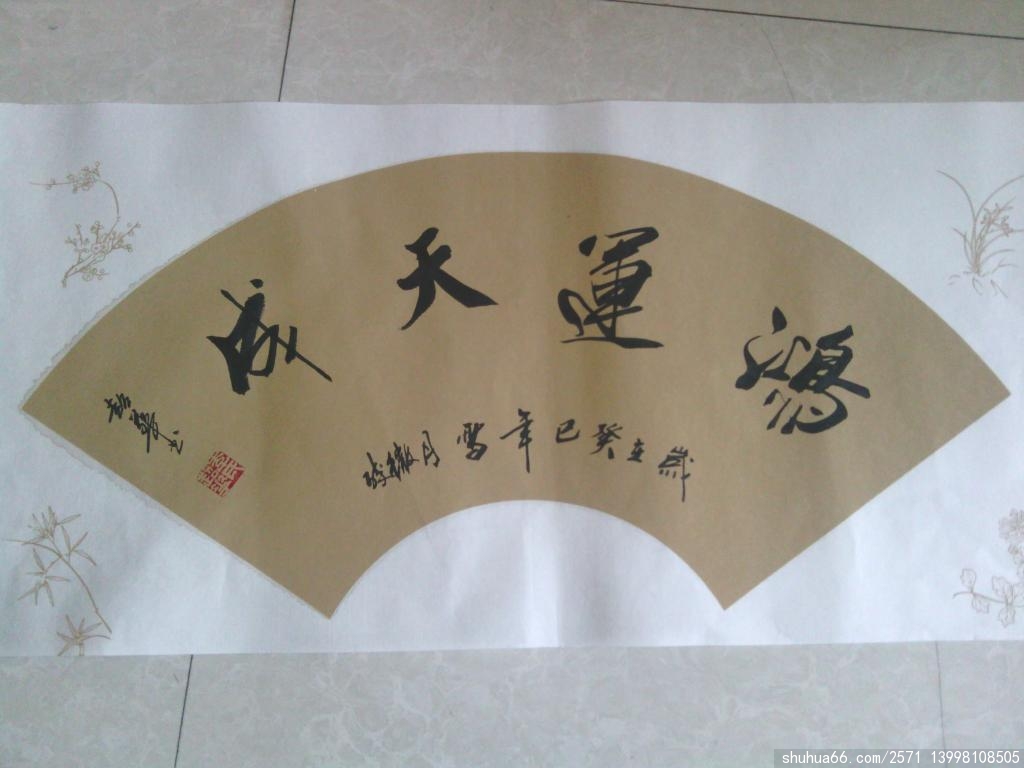 鸿運天成
歲在癸巳年雪月
書
shuhua66.com/2571 13998108505